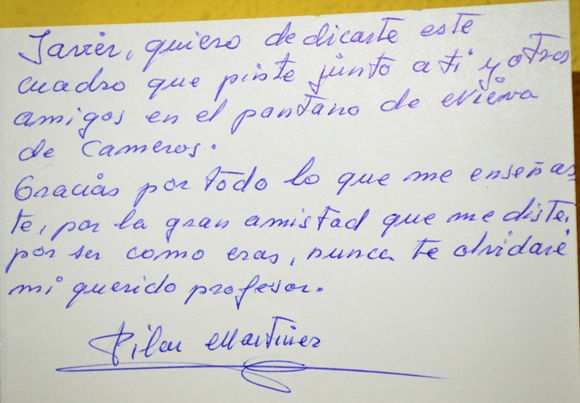 Javier, quiero dedicarte este
cuadro que pinté junto a ti y otros
amigos en el pantano de Nieva
de Cameros.
Gracias por todo lo que me enseñas
te, por la gran amistad que me diste,
por ser como eras, nunca te olvidaré
mi querido profesor.
Pilar Martínez